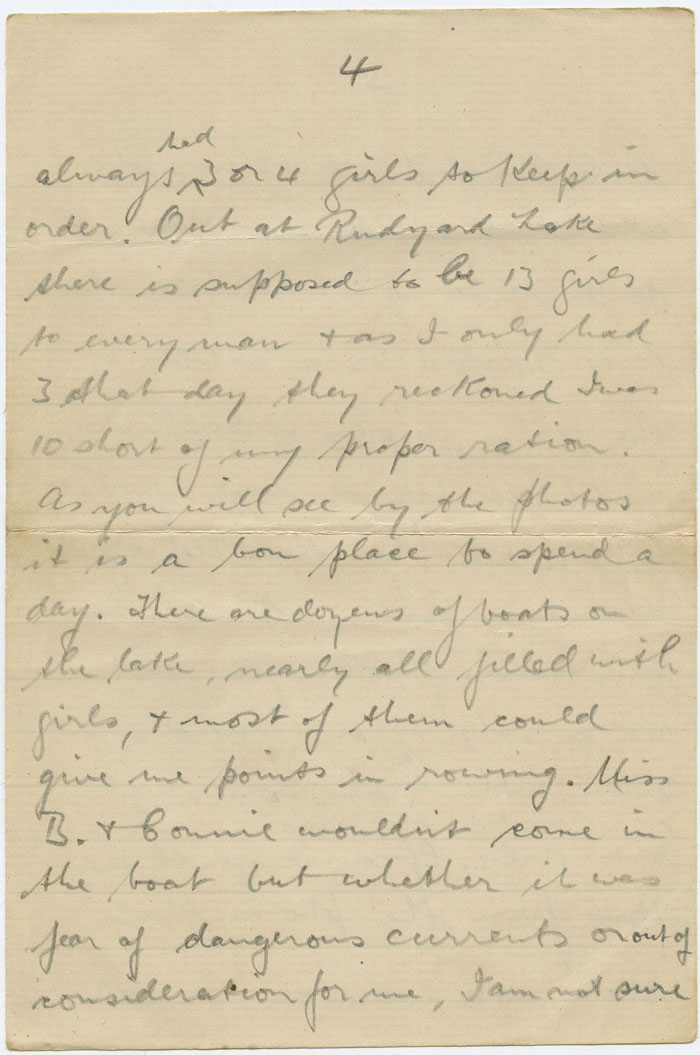 4
had
always 3 or 4 girls to keep in
order. Out at Rudyard Lake
there is supposed to be 13 girls
to every man + as I only had
3 that day they reckoned I was
10 short of my proper ration.
As you will see by the photos
it is a bon place to spend a
day. There are dozens of boats on
the lake, nearly all filled with
girls, + most of them could
give me points in rowing. Miss
B. + Connie wouldn't come in
the boat but whether it was
fear of dangerous currents or out of
consideration for me, I am not sure